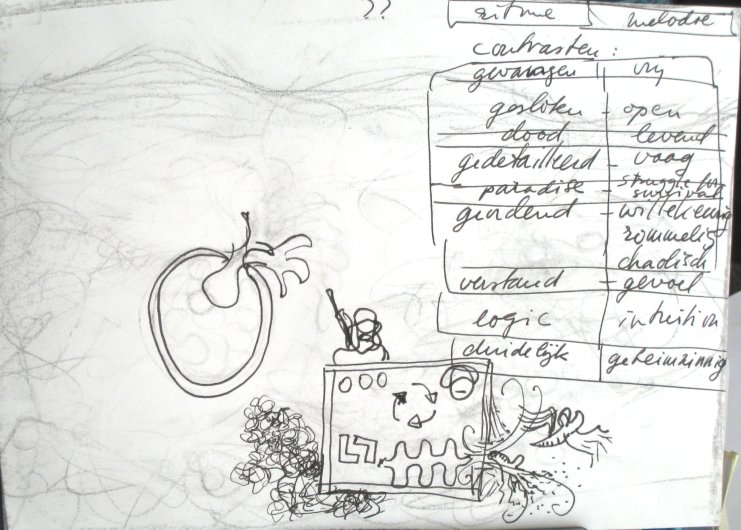 ??
ritme melodie
contrasten:
gevangen vrij
gesloten - open
dood - levend
gedetailleerd - vaag
paradise - struggle for survival
geordend - willekeurig
rommelig
chaotisch
verstand - gevoel
logic intuition
duidelijk geheimzinnig